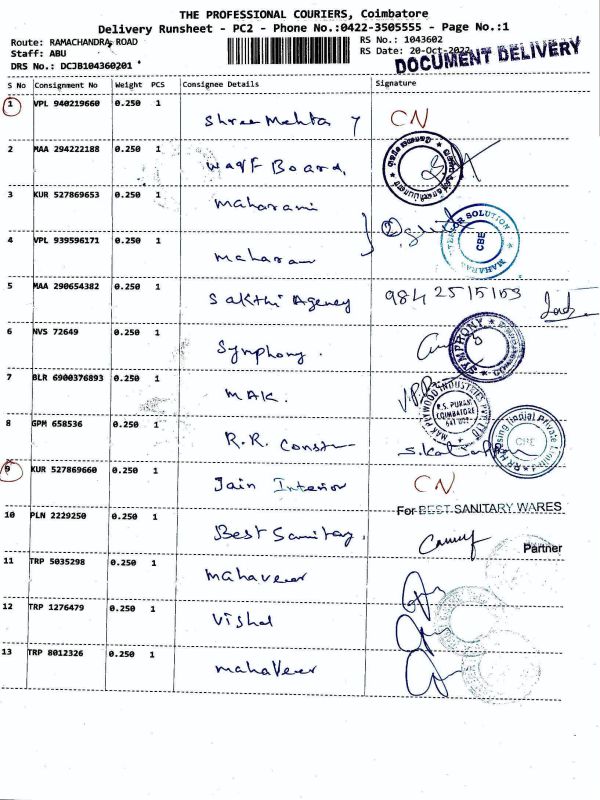 THE PROFESSIONAL COURIERS, Coimbatore
Delivery Runsheet - PC2 - Phone No.:0422-3505555 - Page No.:1
Route: RAMACHANDRA ROAD
RS No.: 1043602
Staff: ABU
RS Date: 20-Oct-2022
DRS No.: DCJB104360201
DOCUMENT DELIVERY
S No Consignment No Weight PCS Consignee Details Signature
1 VPL 940219660 0.250 1 Shree Mehta CN
2 MAA 294222188 0.250 1 Waqf Board,
3 KUR 527869653 0.250 1 maharani
4 VPL 939596171 0.250 1 maharani
INTERIOR SOLUTION CBE
5 MAA 290654382 0.250 1 Sakthi Agency 98425 15153
6 NVS 72649 0.250 1 Symphony.
SYMPHONY
7 BLR 6900376893 0.250 1 MAK.
MAK PLYWOOD INDUSTRIES PVT LTD
R.S. PURAM
COIMBATORE
641 002
8 GPM 658536 0.250 1 R.R. Constn
CBE
9 KUR 527869660 0.250 1 Jain Interior CN
For BEST SANITARY WARES
10 PLN 2229250 0.250 1 Best Sanitary.
Partner
11 TRP 5035298 0.250 1 mahaveer
12 TRP 1276479 0.250 1 Vishal
13 TRP 8012326 0.250 1 mahaveer